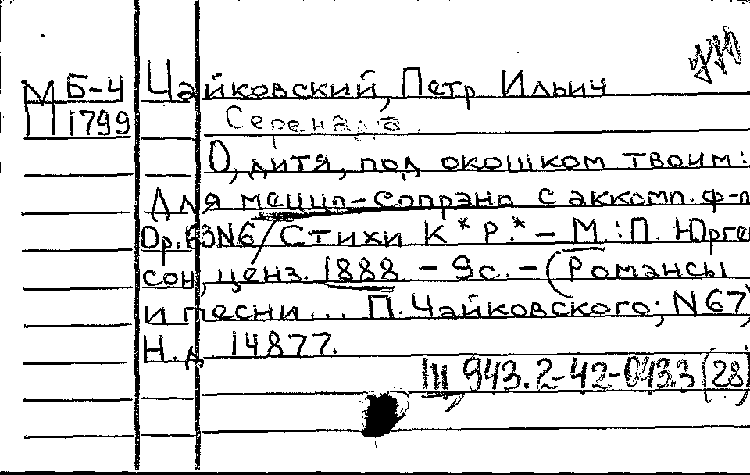 М Б-4
1799
Чайковский, Петр Ильич
Серенада.
О, дитя, под окошком твоим:
Для меццо-сопрано с аккомп. ф-п
Op.63 N6 / Стихи К*Р.* - М.: П. Юрген
сон, ценз. 1888 - 9с. - (Романсы
и песни... П. Чайковского; N 67)
Н.д 14877.
III 943.2-42-043.3 (28)